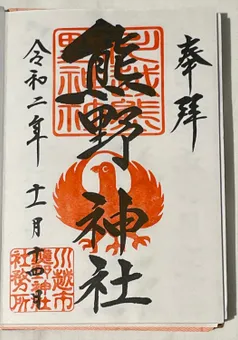 奉拝
川越熊野神社
熊野神社
令和二年
十一月十四日
川越市
熊野神社
社務所